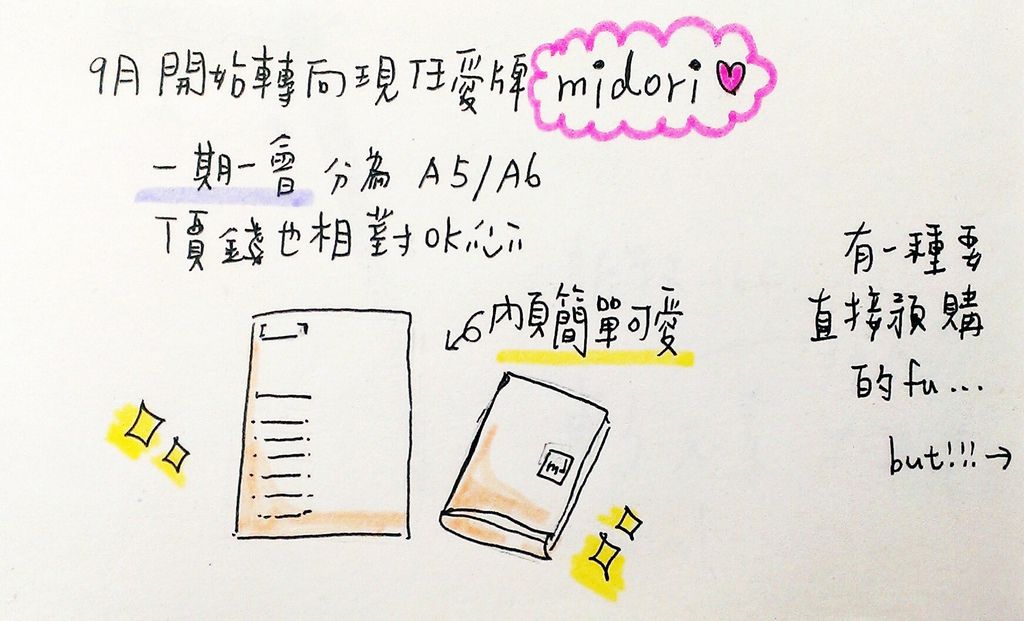 9月開始轉向現任愛牌 midori
一期一會 分為 A5/A6
價錢也相對ok
內頁簡單可愛
有一種要
直接預購
的fu...
but!!!→
md